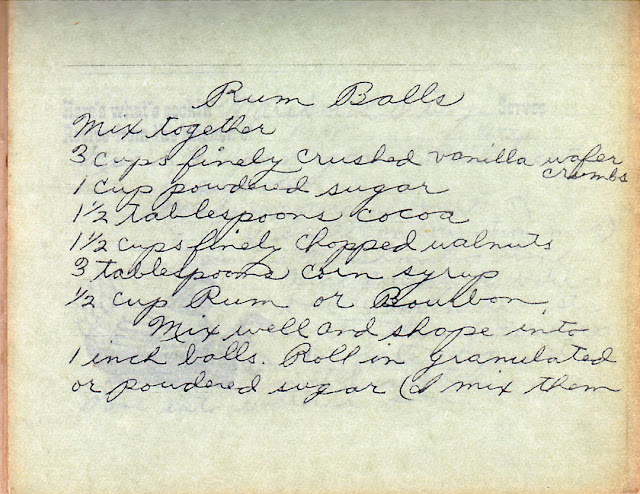 Rum Balls
Mix together
3 cups finely crushed vanilla wafer
crumbs
1 cup powdered sugar
1 1/2 tablespoons cocoa
1 1/2 cups finely chopped walnuts
3 tablespoons corn syrup
1/2 cup Rum or Bourbon
Mix well and shape into
1 inch balls. Roll in granulated
or powdered sugar (I mix them